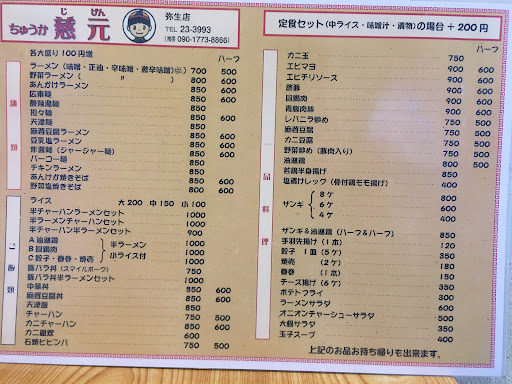 じげん
ちゅうか 慈元
弥生店
TEL 23-3993
(携帯) 090-1773-8866
各大盛り100円増
ハーフ
麺類
ラーメン (味噌・正油・辛味噌・激辛味噌) 700 500
野菜ラーメン ( 〃 ) 800 600
あんかけラーメン 850 600
広東麺 850 600
酸辣湯麺
担々麺
天津麺
麻婆豆腐ラーメン
豆乳塩ラーメン
炸醤麺 (ジャージャー麺)
バーコー麺
チキンラーメン
あんかけ焼きそば 850 600
野菜塩焼きそば 800 600
ご飯類
ライス 大200 中150 小100
半チャーハンラーメンセット 1000
半ラーメンチャーハンセット 1000
半チャーハン半ラーメンセット 900
A 油淋鶏 半ラーメン 1000
B 回鍋肉 小ライス付 1000
C 餃子・春巻・焼売 1000
豚バラ丼 (スマイルポーク) 750
豚バラ丼半ラーメンセット 1000
中華丼 850 600
麻婆豆腐丼 850 600
天津飯 850
チャーハン 750 500
カニチャーハン 850 600
カニ雑炊 600
石焼ビビンバ 750 500
定食セット(中ライス・味噌汁・漬物)の場合 +200円
ハーフ
一品料理
カニ玉 750
エビマヨ 900 600
エビチリソース 900 600
酢豚 900 600
回鍋肉 900 600
青椒肉絲 900 600
レバニラ炒め 750 500
麻婆豆腐 750 500
カニ豆腐 750 500
野菜炒め (豚肉入り) 750 500
油淋鶏 850 600
若鶏半身揚げ 850
塩漬けレッグ (骨付鶏モモ揚げ) 400
サンギ
8ヶ 800
6ヶ 600
4ヶ 400
サンギ&油淋鶏 (ハーフ&ハーフ) 850
手羽先揚げ (1本) 120
餃子 1皿 (5ヶ)
焼売 (2ヶ)
春巻 (1本) 150
チーズ揚げ (6ヶ)
ポテトフライ
ラーメンサラダ
オニオンチャーシューサラダ
大根サラダ
玉子スープ 400
上記のお品お持ち帰りも出来ます。